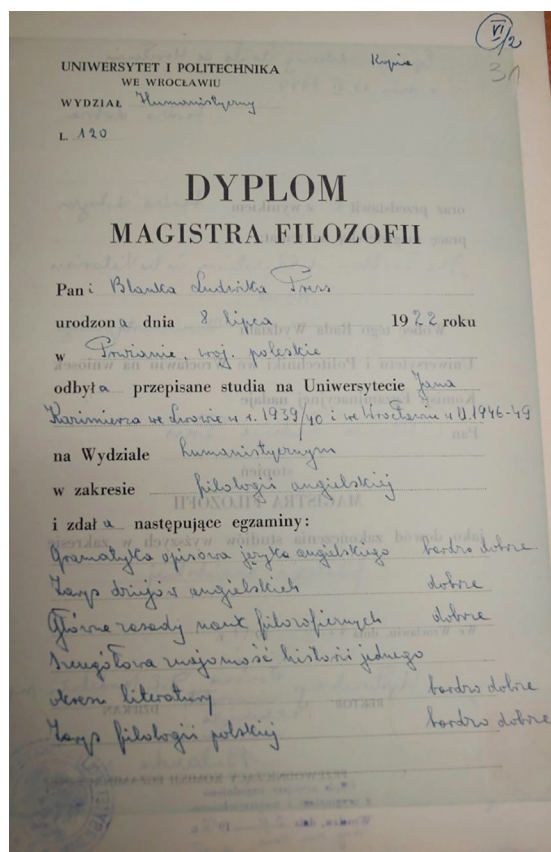 VI/2
31
Kopia
UNIWERSYTET I POLITECHNIKA
WE WROCŁAWIU
WYDZIAŁ Humanistyczny
L. 120
DYPLOM
MAGISTRA FILOZOFII
Pani Blanka Ludwika Press
urodzona dnia 8 lipca 1922 roku
w woj. poleskie
odbyła przepisane studia na Uniwersytecie Jana
Kazimierza we Lwowie w r. 1939/40 i we Wrocławiu w l. 1946-49
na Wydziale humanistycznym
w zakresie filologii angielskiej
i zdała następujące egzaminy:
Gramatyka opisowa języka angielskiego bardzo dobrze
Zarys dziejów angielskich dobrze
Główne zasady nauk filozoficznych dobrze
Szczegółowa znajomość historii jednego
okresu literatury bardzo dobrze
Zarys filologii polskiej bardzo dobrze